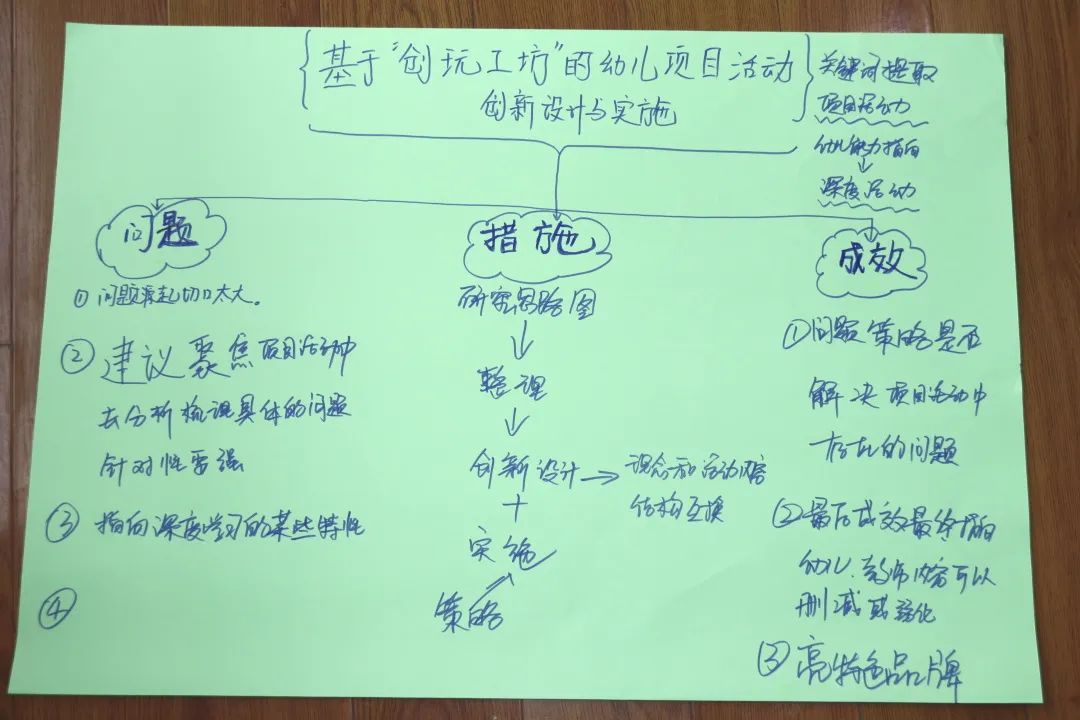 基于“创玩工坊”的幼儿项目活动
创新设计与实施
关键词提取
项目活动
幼儿能力指向
深度活动
问题
① 问题缘起切口太大。
② 建议聚焦项目活动中
去分析梳理具体的问题
针对性要强
③ 指向深度学习的某些特性
④
措施
研究思路图
整理
创新设计 → 理念和活动内容
结构互换
+
实施
策略
成效
① 问题策略是否
解决项目活动中
存在的问题
② 最后成效最终指向
幼儿.教师内容可以
删减或弱化
③ 高特色品牌